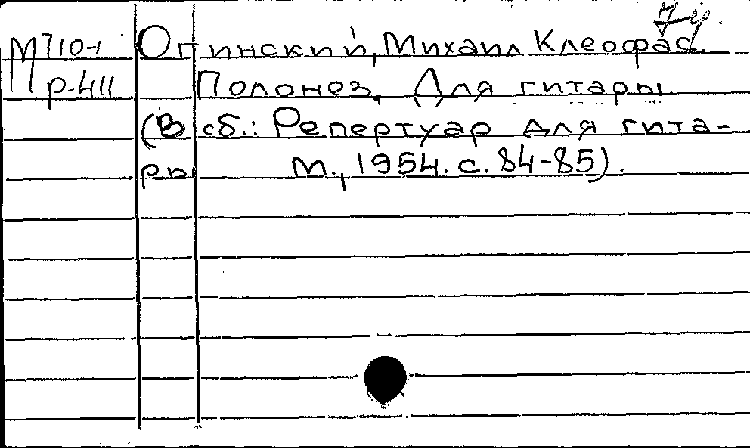 М710-1 Огинский, Михаил Клеофас.
р-411 Полонез. Для гитары
(В сб.: Репертуар для гита-
ры М., 1954. с. 84-85).